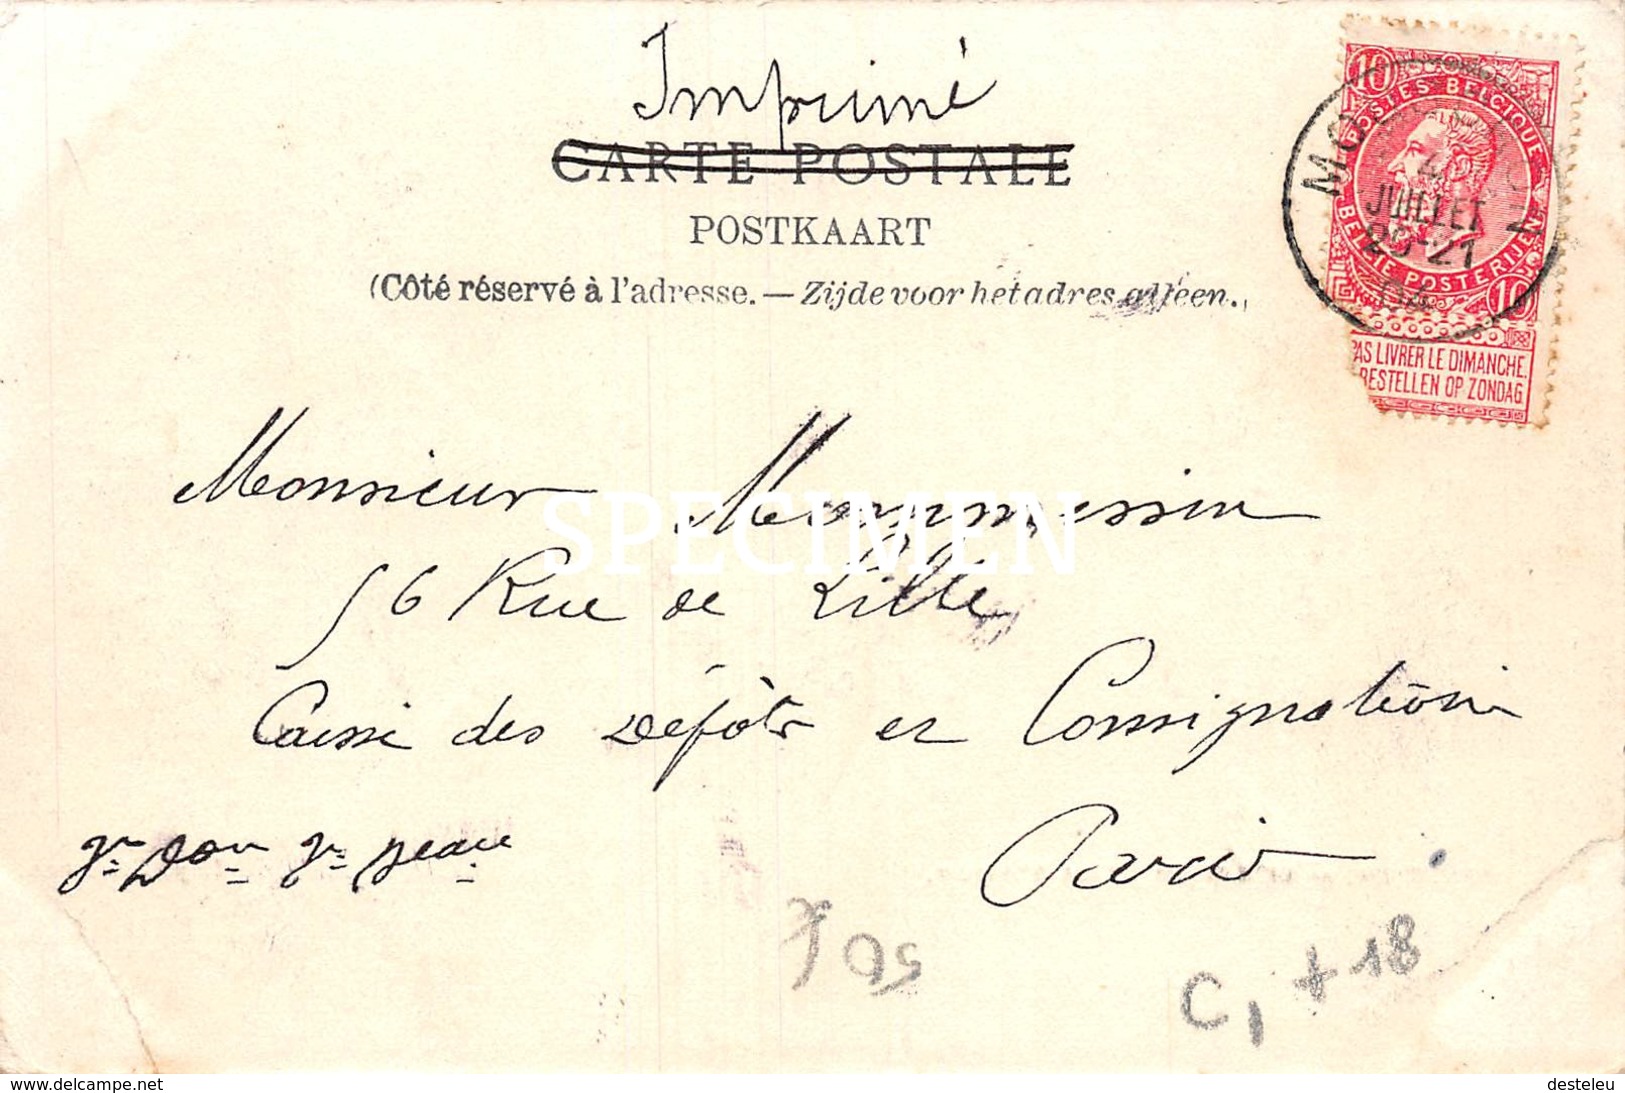 Imprimé
CARTE POSTALE
POSTKAART
(Côté réservé à l'adresse. — Zijde voor het adres alleen.)
10 10
POSTES BELGIQUE
BELGIE POSTERIJEN
10
4
JUILLET
20-21
04
PAS LIVRER LE DIMANCHE.
BESTELLEN OP ZONDAG
Monsieur Mommessin
56 Rue de Lille
Caisse des Dépôts et Consignations
Paris
SPECIMEN
C, + 18
www.delcampe.net
desteleu